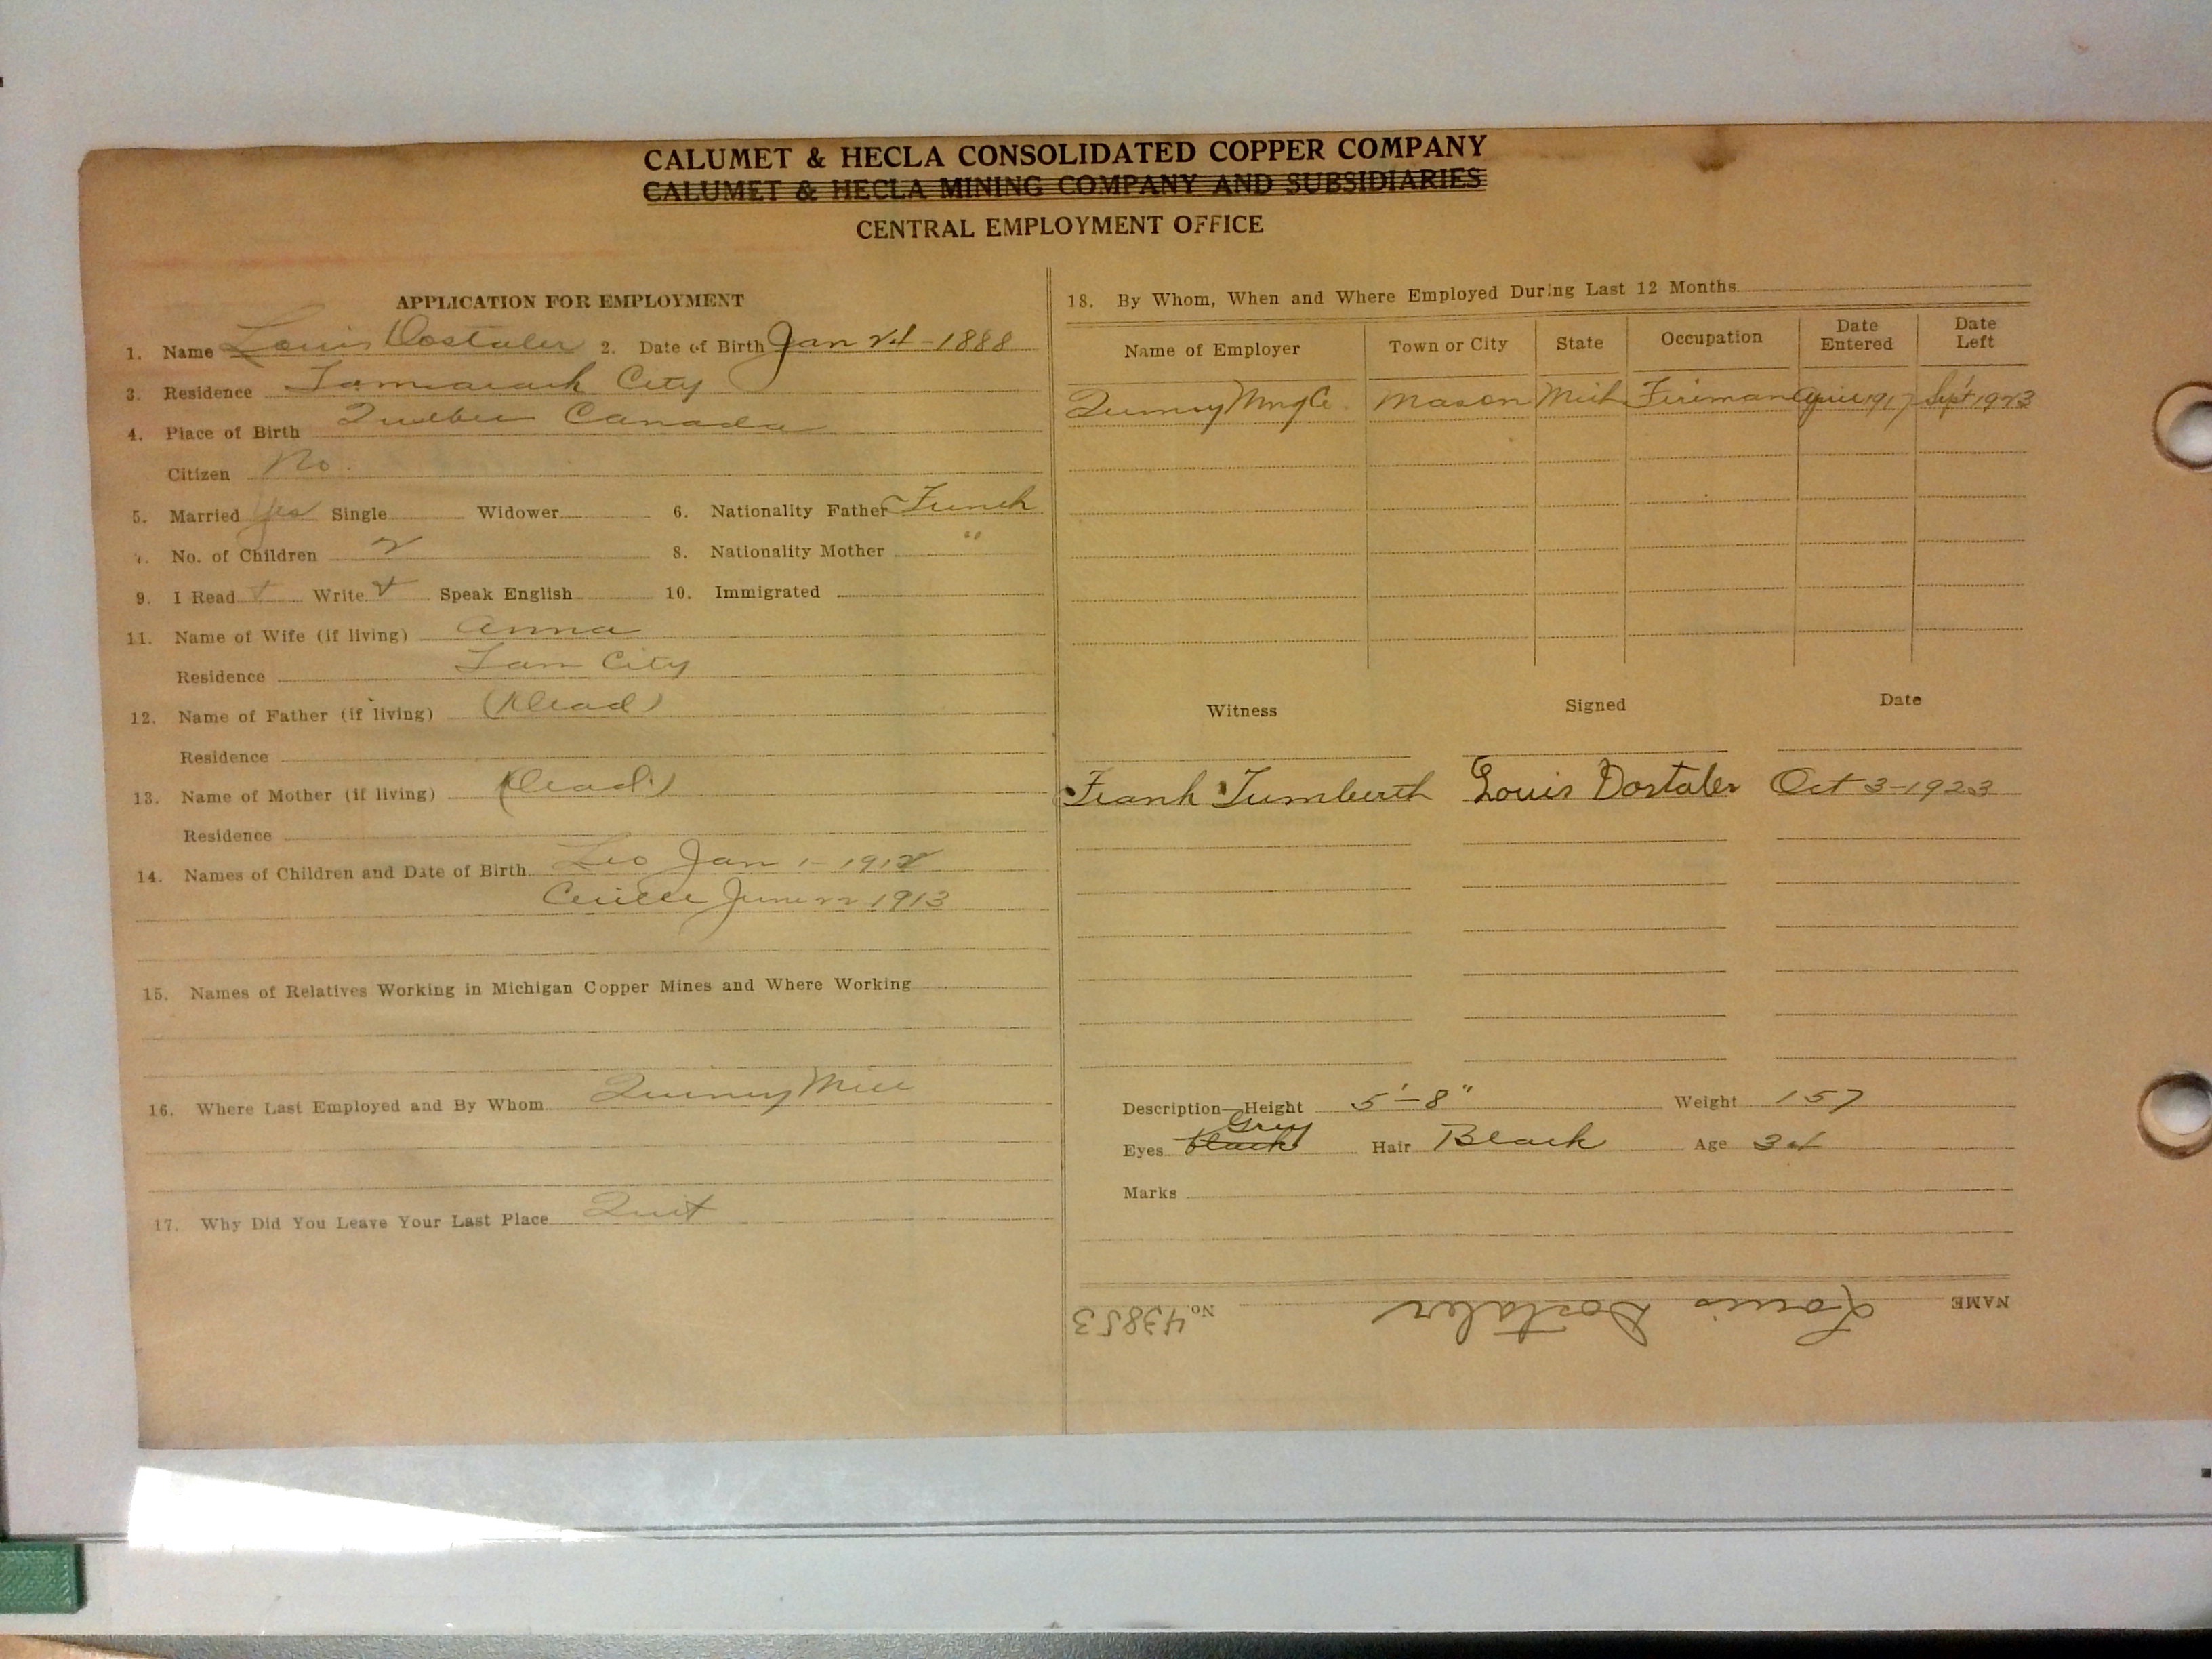 CALUMET & HECLA CONSOLIDATED COPPER COMPANY
CALUMET & HECLA MINING COMPANY AND SUBSIDIARIES
CENTRAL EMPLOYMENT OFFICE
APPLICATION FOR EMPLOYMENT
1. Name Louis Dostaler 2. Date of Birth Jan 24-1888
3. Residence Tamarack City
4. Place of Birth Quebec Canada
Citizen No.
5. Married Yes Single Widower 6. Nationality Father French
7. No. of Children 2 8. Nationality Mother "
9. I Read Write Speak English 10. Immigrated
11. Name of Wife (if living) Anna
Residence Tam City
12. Name of Father (if living) (Dead)
Residence
13. Name of Mother (if living) (Dead)
Residence
14. Names of Children and Date of Birth Leo Jan 1-1912
June 22 1913
15. Names of Relatives Working in Michigan Copper Mines and Where Working
16. Where Last Employed and By Whom Quincy Mill
17. Why Did You Leave Your Last Place Quit
18. By Whom, When and Where Employed During Last 12 Months
Name of Employer Town or City State Occupation Date Entered Date Left
Quincy Mng Co. Mason Mich Fireman April 1917 Sept 1923
Witness Signed Date
Frank Louis Dostaler Oct 3-1923
Description—Height 5'-8" Weight 157
Grey
Eyes black Hair Black Age 34
Marks
NAME Louis Dostaler No. 43853